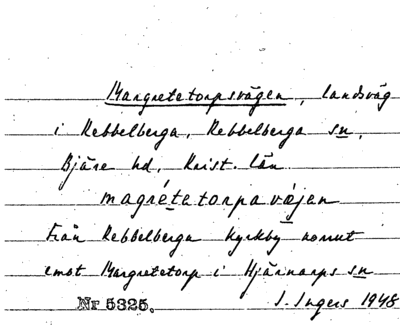 Margretetorpsvägen, landsväg
i Rebbelberga, Rebbelberga sn,
Bjäre hd, Krist. län
magrétetorpavæjen
Från Rebbelberga kyrkby norrut
emot Margretetorp i Hjärnarps sn
Nr 5325. I. Ingers 1948